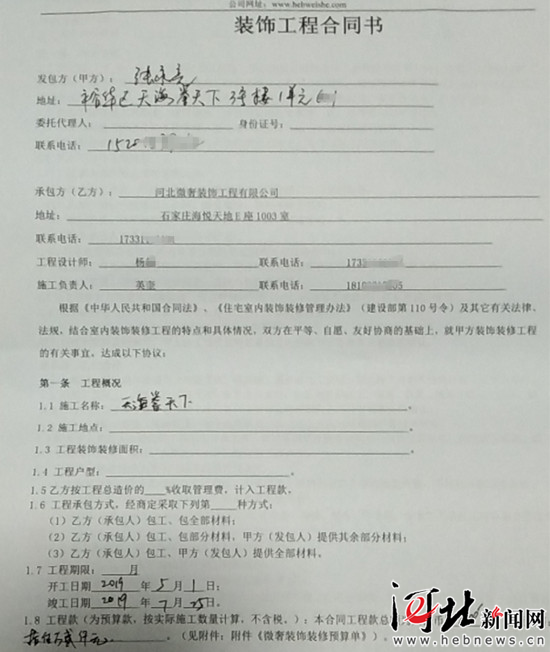 公司网址：www.hebweishe.com
装饰工程合同书
发包方（甲方）：张
地址： 裕华区天海誉天下 楼1单元
委托代理人： 身份证号：
联系电话： 152
承包方（乙方）： 河北微奢装饰工程有限公司
地址： 石家庄海悦天地E座1003室
联系电话： 1733
工程设计师： 杨 联系电话： 173
施工负责人： 英奎 联系电话： 181
根据《中华人民共和国合同法》、《住宅室内装饰装修管理办法》（建设部第110号令）及其它有关法律、
法规，结合室内装饰装修工程的特点和具体情况，双方在平等、自愿、友好协商的基础上，就甲方装饰装修工程
的有关事宜，达成以下协议：
第一条 工程概况
1.1 施工名称：天海誉天下。
1.2 施工地点：。
1.3 工程装饰装修面积：。
1.4 工程户型：。
1.5乙方按工程总造价的____%收取管理费，计入工程款。
1.6 工程承包方式，经商定采取下列第____种方式：
（1）乙方（承包人）包工、包全部材料；
（2）乙方（承包人）包工、包部分材料，甲方（发包人）提供其余部分材料；
（3）乙方（承包人）包工、甲方（发包人）提供全部材料。
1.7 工程期限：____月
开工日期 2019 年 5 月 1 日；
竣工日期 2019 年 7 月 25日。
1.8 工程款（为预算款，按实际施工数量计算，不含税。）：本合同工程款总
。（见附件：附件《微奢装饰装修预算单》）。
河北新闻网
www.hebnews.cn